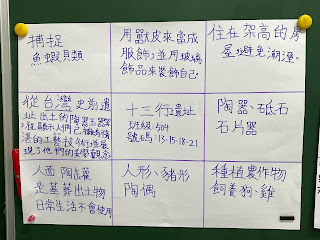 捕捉
魚蝦貝類
用獸皮來當成
服飾,並用玻璃
飾品來裝飾自己。
住在架高的房
屋,避免潮溼。
從台灣史前遺
址出土的陶器玉器等
就顯示人們已
湛的工藝技術
現了他們的美學觀念
十三行遺址
班級:504
號碼:13.15.18.21
陶器、砥石
石片器
人面陶
是墓葬出土物
日常生活不會使用
人形、豬形
陶偶
種植農作物
飼養狗、雞